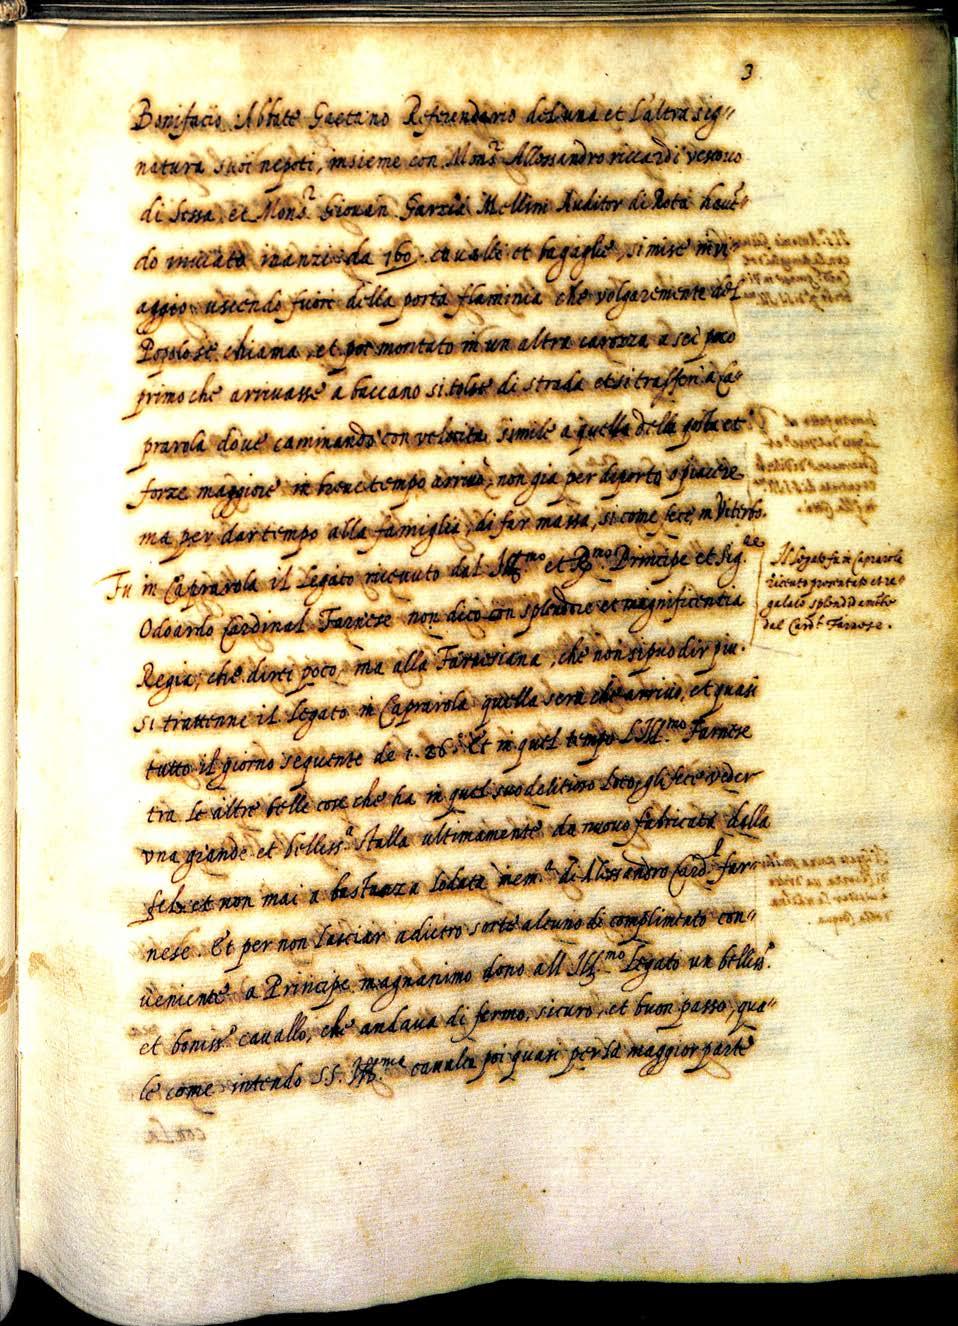 3
Bonifacio Abbate Gaetano Referendario del una et l'altra sig-
natura suoi nepoti, insieme con Mons.r Allessandro riccardi vescovo
di Sessa, et Mons.r Giovan Garzia Mellini Auditor di Rota haue-
do inviato inanzi da 160. cavalli et bagaglie, si mise in vi-
aggio uscendo fuori della porta flaminia che volgaremente del
Popolo se chiama, et poi montato in un altra carozza a sei poco
primo che arrivasse a baccano si tolse di strada et si trasferi a Ca-
prarola dove caminando con velocita simile a quella della posta et
forze maggiore in breve tempo arrivò, non gia per diporto o piacere
ma per dar tempo alla famiglia, di far massa, si come fece, in Viterbo.
Fu in Caprarola il Legato ricevuto dal Ill.mo et R.mo Principe et Sig.re
Odoardo Cardinal Farnese non dico con splendore et magnificentia
Regia, che direi poco, ma alla Farnesiana, che non si puo dir piu.
Si trattenne il Legato in Caprarola quella sera che arrivò, et quasi
tutto il giorno sequente de i . 26. Et in quel tempo l'Ill.mo Farnese
tra le altre belle cose che ha in quel suo delitioso loco, gli fece veder
una grande et belliss.a stalla ultimamente da nuovo fabricata dalla
fel: et non mai a bastanza lodata mem.a di Alessandro Card.l far-
nese. Et per non lasciar adietro sorte alcuno di complimento con-
veniente a Principe magnanimo dono all Ill.mo Legato un belliss.o
et boniss.o cavallo, che andava di fermo, sicuro, et buon passo, qua-
le come intendo S.S. Ill.ma cavalcò poi quasi per la maggior parte
Il Legato fu in Caprarola
ricevuto presentato et re-
galato splendidamte
dal Card.l Farnese.